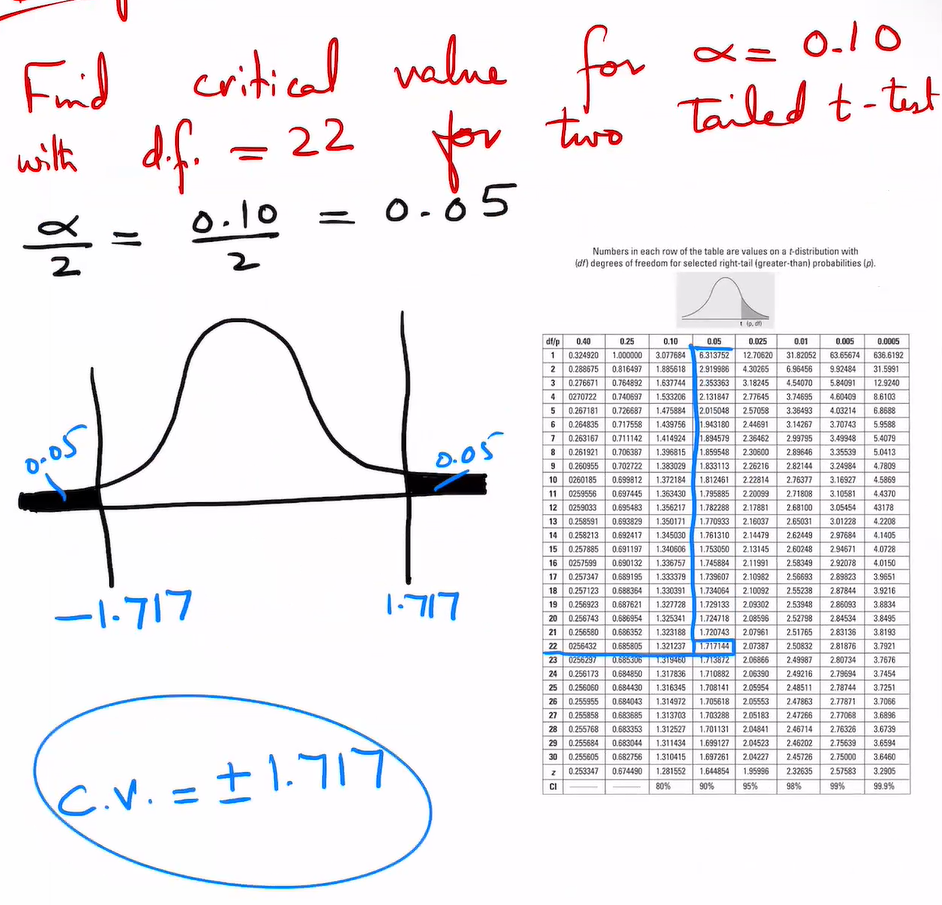 Find critical value for α = 0.10
with d.f. = 22 for two Tailed t-test
α/2 = 0.10/2 = 0.05
Numbers in each row of the table are values on a t-distribution with
(df) degrees of freedom for selected right-tail (greater-than) probabilities (p).
t (p, df)
0.05 0.05
-1.717 1.717
C.V. = ± 1.717
df/p 0.40 0.25 0.10 0.05 0.025 0.01 0.005 0.0005
1 0.324920 1.000000 3.077684 6.313752 12.70620 31.82052 63.65674 636.6192
2 0.288675 0.816497 1.885618 2.919986 4.30265 6.96456 9.92484 31.5991
3 0.276671 0.764892 1.637744 2.353363 3.18245 4.54070 5.84091 12.9240
4 0270722 0.740697 1.533206 2.131847 2.77645 3.74695 4.60409 8.6103
5 0.267181 0.726687 1.475884 2.015048 2.57058 3.36493 4.03214 6.8688
6 0.264835 0.717558 1.439756 1.943180 2.44691 3.14267 3.70743 5.9588
7 0.263167 0.711142 1.414924 1.894579 2.36462 2.99795 3.49948 5.4079
8 0.261921 0.706387 1.396815 1.859548 2.30600 2.89646 3.35539 5.0413
9 0.260955 0.702722 1.383029 1.833113 2.26216 2.82144 3.24984 4.7809
10 0260185 0.699812 1.372184 1.812461 2.22814 2.76377 3.16927 4.5869
11 0259556 0.697445 1.363430 1.795885 2.20099 2.71808 3.10581 4.4370
12 0259033 0.695483 1.356217 1.782288 2.17881 2.68100 3.05454 43178
13 0.258591 0.693829 1.350171 1.770933 2.16037 2.65031 3.01228 4.2208
14 0.258213 0.692417 1.345030 1.761310 2.14479 2.62449 2.97684 4.1405
15 0.257885 0.691197 1.340606 1.753050 2.13145 2.60248 2.94671 4.0728
16 0257599 0.690132 1.336757 1.745884 2.11991 2.58349 2.92078 4.0150
17 0.257347 0.689195 1.333379 1.739607 2.10982 2.56693 2.89823 3.9651
18 0.257123 0.688364 1.330391 1.734064 2.10092 2.55238 2.87844 3.9216
19 0.256923 0.687621 1.327728 1.729133 2.09302 2.53948 2.86093 3.8834
20 0.256743 0.686954 1.325341 1.724718 2.08596 2.52798 2.84534 3.8495
21 0.256580 0.686352 1.323188 1.720743 2.07961 2.51765 2.83136 3.8193
22 0256432 0.685805 1.321237 1.717144 2.07387 2.50832 2.81876 3.7921
23 0256297 0.685306 1.319460 1.713872 2.06866 2.49987 2.80734 3.7676
24 0.256173 0.684850 1.317836 1.710882 2.06390 2.49216 2.79694 3.7454
25 0.256060 0.684430 1.316345 1.708141 2.05954 2.48511 2.78744 3.7251
26 0.255955 0.684043 1.314972 1.705618 2.05553 2.47863 2.77871 3.7066
27 0.255858 0.683685 1.313703 1.703288 2.05183 2.47266 2.77068 3.6896
28 0.255768 0.683353 1.312527 1.701131 2.04841 2.46714 2.76326 3.6739
29 0.255684 0.683044 1.311434 1.699127 2.04523 2.46202 2.75639 3.6594
30 0.255605 0.682756 1.310415 1.697261 2.04227 2.45726 2.75000 3.6460
z 0.253347 0.674490 1.281552 1.644854 1.95996 2.32635 2.57583 3.2905
CI 80% 90% 95% 98% 99% 99.9%